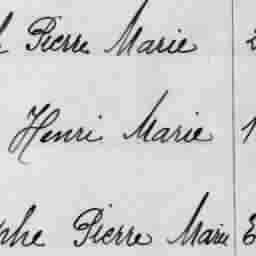 Pierre Marie 2
Henri Marie 1
phe Pierre Marie